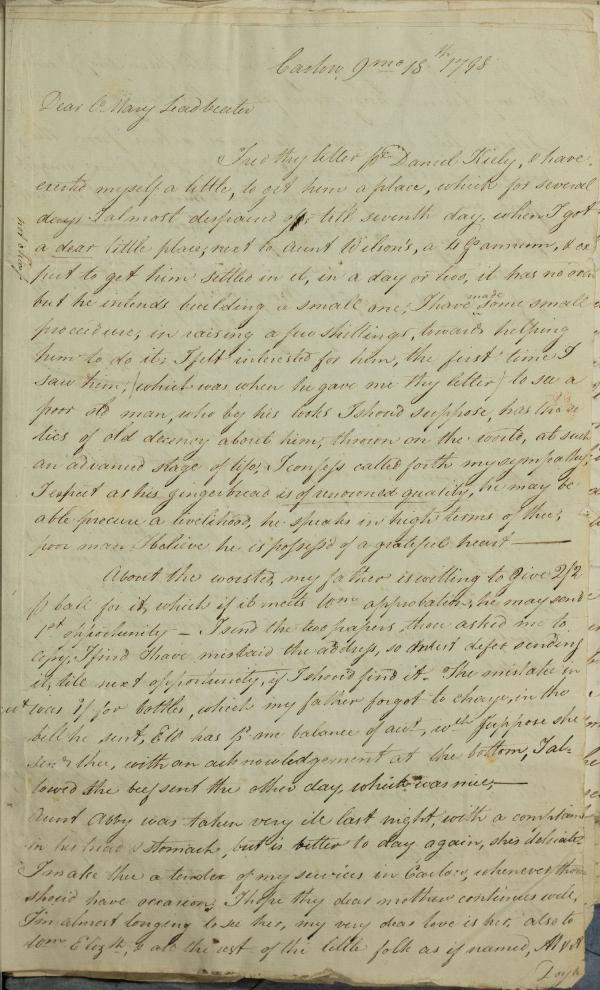 Carlow, 9mo 18th 1798
Dear Cn Mary Leadbeater
I rec'd thy letter pr Daniel Kiely, & have
exerted myself a little, to get him a place, which for several
days I almost despaired of, till seventh day, when I got
a dear little place, next to Aunt Wilson's, a 4 Gs annum, & ex
pect to get him settled in it, in a day or two, it has no oven
but he intends building a small one; I have made some small
proceedure, in raising a few shillings, towards helping
him to do it; I felt interested for him, the first time I
saw him, (which was when he gave me thy letter) to see a
poor old man, who by his looks I should suppose, has the re
lics of old decency about him, thrown on the world, at such
an advanced stage of life, I confess called forth my sympathy,
I expect as his gingerbread is of renowned quality, he may be
able procure a livelihood, he speaks in high terms of thee,
poor man I believe he is possess'd of a grateful heart —
About the worsted, my father is willing to give 2/2
p ball for it, which if it meets Wm approbation, he may send
1st opportunity — I send the two papers, thou asked me to
copy, I find I have mislaid the address, so must defer sending
it, till next opportunity, if I should find it. The mistake in
was for bottles, which my father forgot to charge, in the
bill he sent, EW has pd me balance of acct, wch I suppose she
sent thee, with an acknowledgement at the bottom, I al-
lowed the beef sent the other day, which was nice, —
Aunt Abby was taken very ill last night, with a complaint
in her head & stomach, but is better to day again, she's delicate
I make thee a tender of my services in Carlow, whenever thou
should have occasion; I hope thy dear mother continues well,
I'm almost longing to see her, my very dear love is her, also to
Wm Elizth, & all the rest of the little folk as if named,